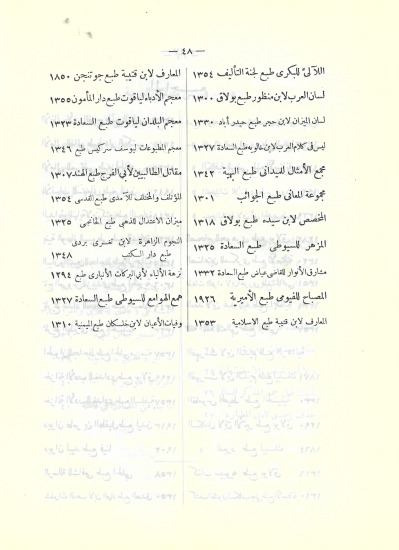 — ٤٨ —
اللآلئ للبكرى طبع لجنة التأليف ١٣٥٤
لسان العرب لابن منظور طبع بولاق ١٣٠٠
لسان الميزان لابن حجر طبع حيدر أباد ١٣٣٠
ليس فى كلام العرب لابن خالويه طبع السعادة ١٣٢٧
مجمع الأمثال للميدانى طبع البهية ١٣٤٢
مجموعة المعانى طبع الجوائب ١٣٠١
المخصص لابن سيده طبع بولاق ١٣١٨
المزهر للسيوطى طبع السعادة ١٣٢٥
مشارق الأنوار للقاضى عياض طبع السعادة ١٣٣٢
المصباح للفيومى طبع الأميرية ١٩٢٦
المعارف لابن قتيبة طبع الاسلامية ١٣٥٣
المعارف لابن قتيبة طبع جوتنجن ١٨٥٠
معجم الأدباء لياقوت طبع دار المأمون ١٣٥٥
معجم البلدان لياقوت طبع السعادة ١٣٢٣
معجم المطبوعات ليوسف سركيس طبع ١٣٤٦
مقاتل الطالبيين لأبى الفرج طبع الهند ١٣٠٧
المؤتلف والمختلف للآمدى طبع القدسى ١٣٥٤
ميزان الاعتدال للذهبى طبع الخانجى ١٣٢٥
النجوم الزاهرة لابن تغرى بردى
طبع دار الكتب ١٣٤٨
نزهة الألباء لأبى البركات الأنبارى طبع ١٢٩٤
همع الهوامع للسيوطى طبع السعادة ١٣٢٧
وفيات الأعيان لابن خلكان طبع اليمنية ١٣١٠